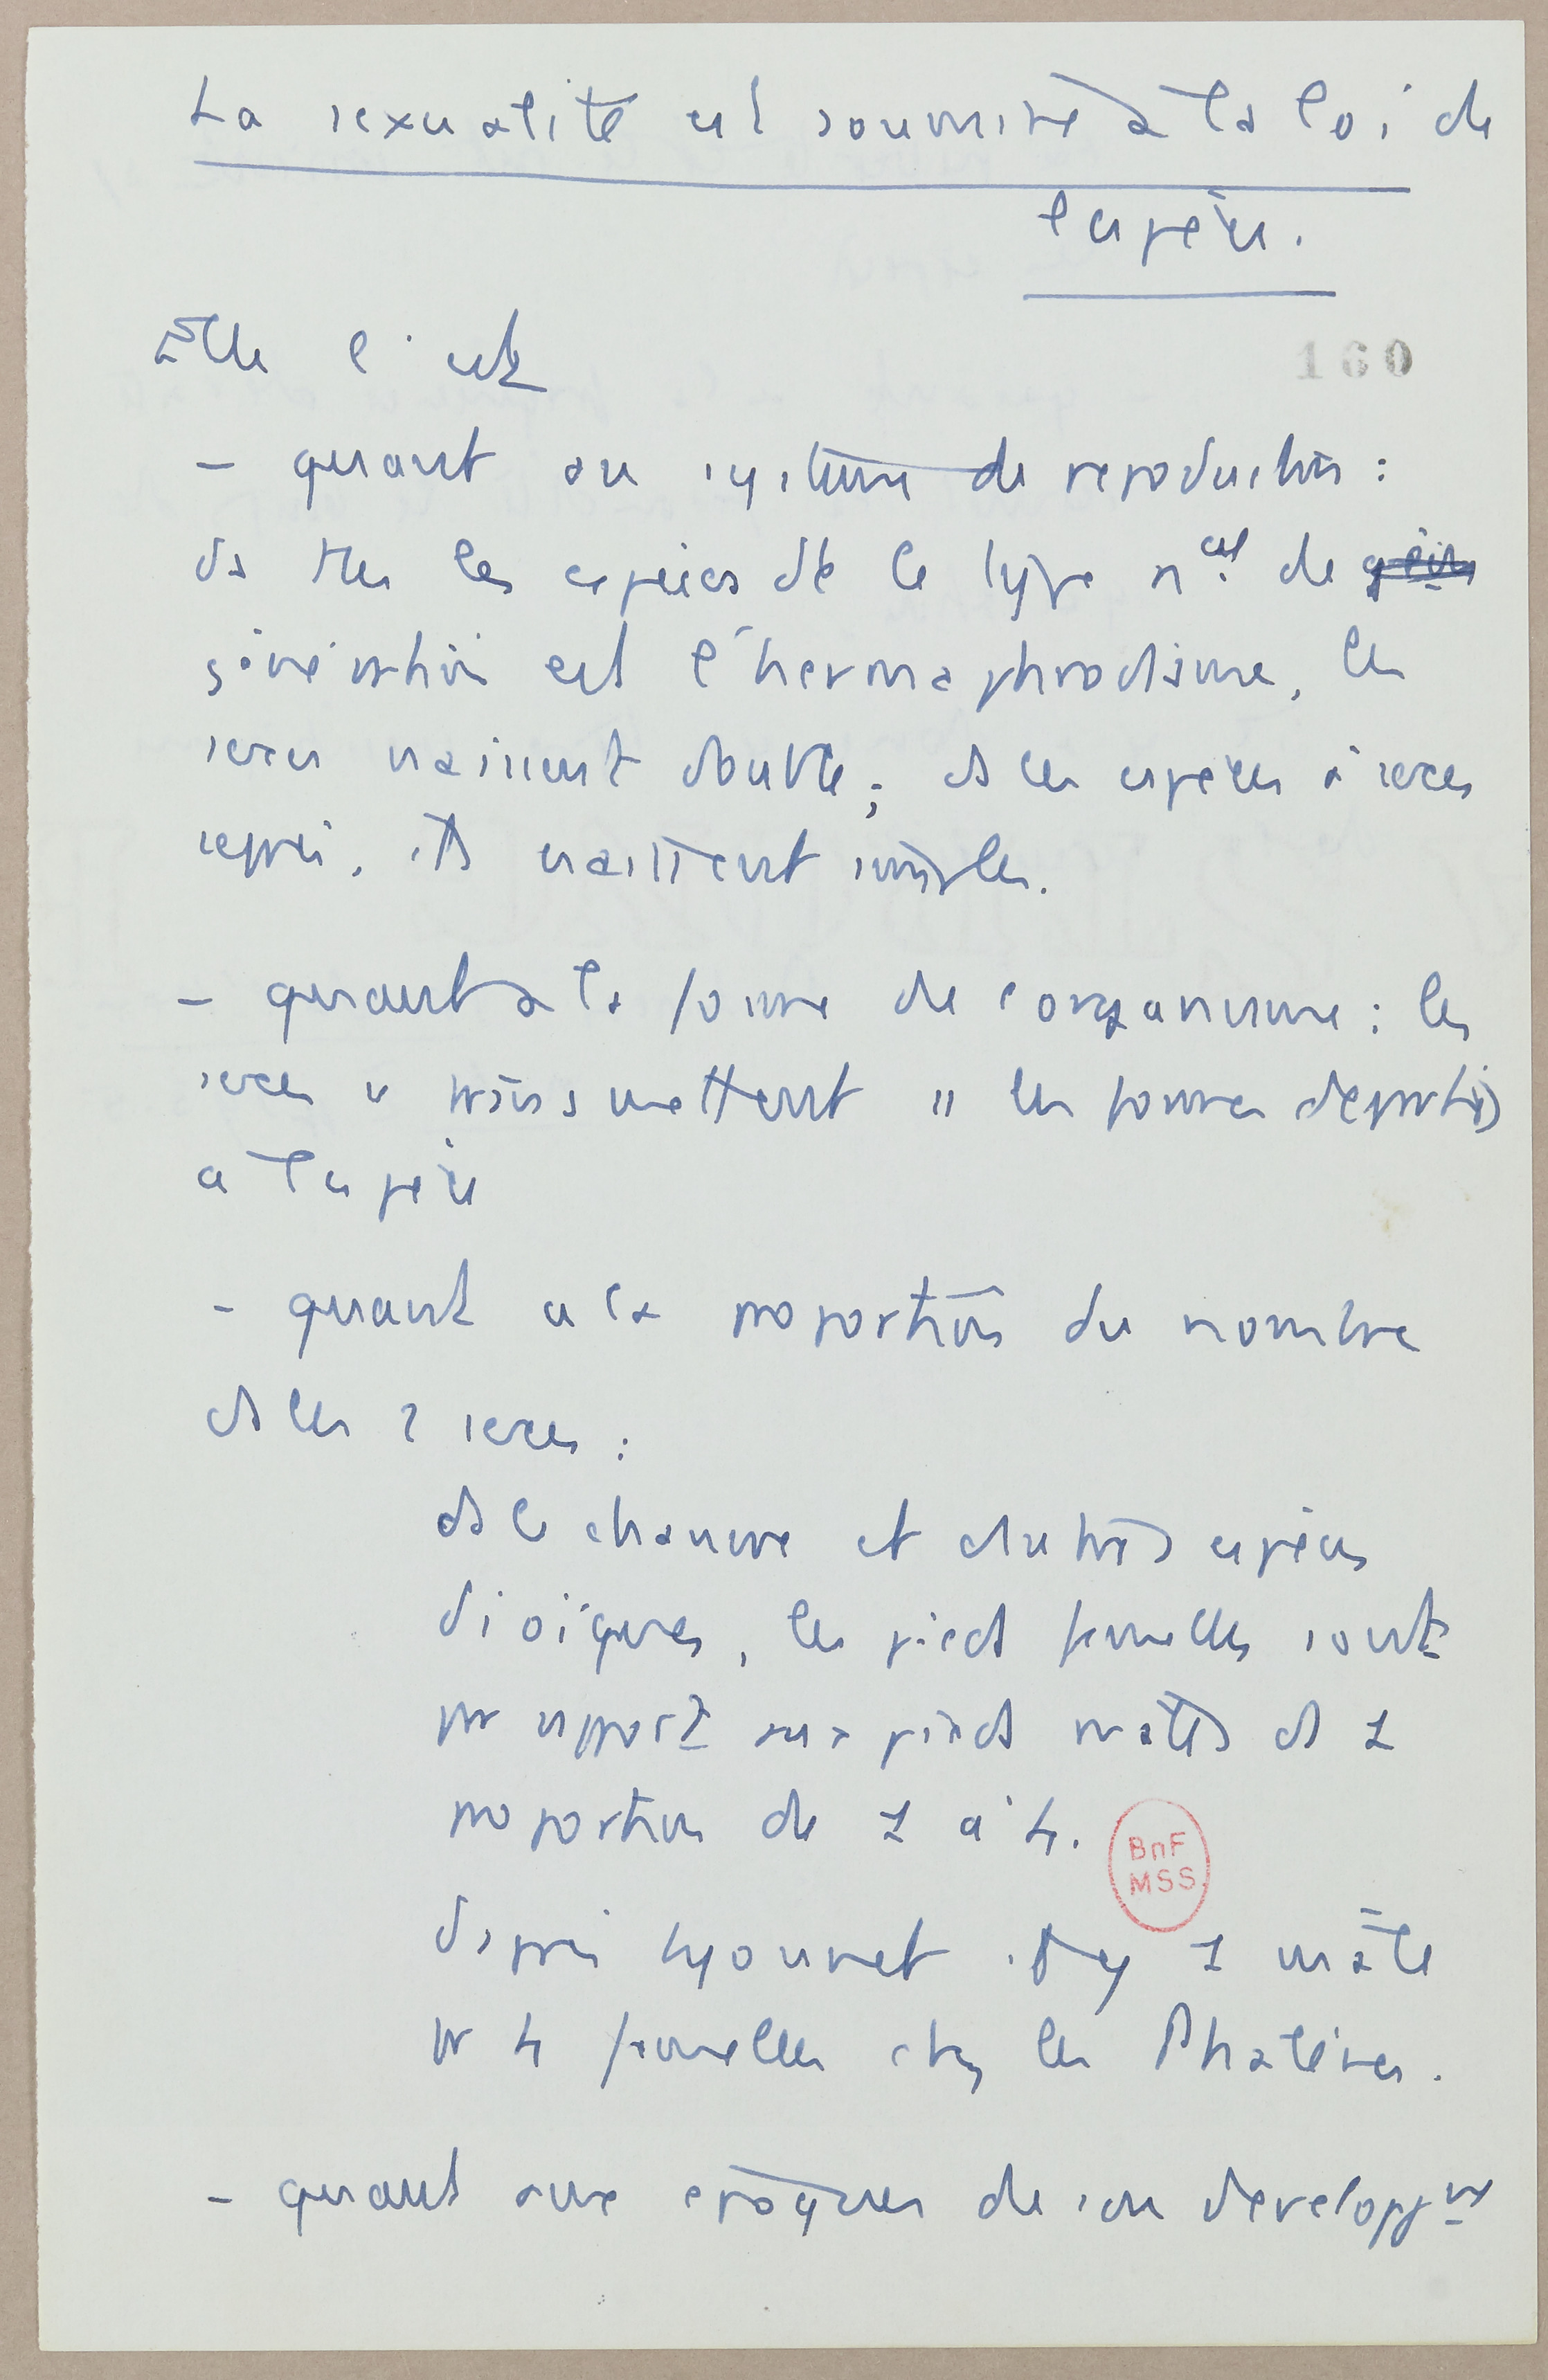 La sexualité est soumise à la loi de
l'espèce.
160
Elle l'est
- quant au système de reproduction :
ds ttes les espèces dt le type n^el de
génération est l'hermaphrodisme, les
sexes naissent double ; ds les espèces à sexes
séparés, ils naissent simples.
- quant à la forme de l'organisme : les
sexes " transmettent " les formes départies
à l'espèce
- quant à la proportion du nombre
ds les 2 sexes :
ds le chanvre et d'autres espèces
dioïques, les pieds femelles sont
par rapport aux pieds mâles ds 1
proportion de 1 à 4.
d'après Lyonnet il y a 1 mâle
pr 4 femelles chez les Phalènes.
BnF
MSS
- quant aux époques de son developpt